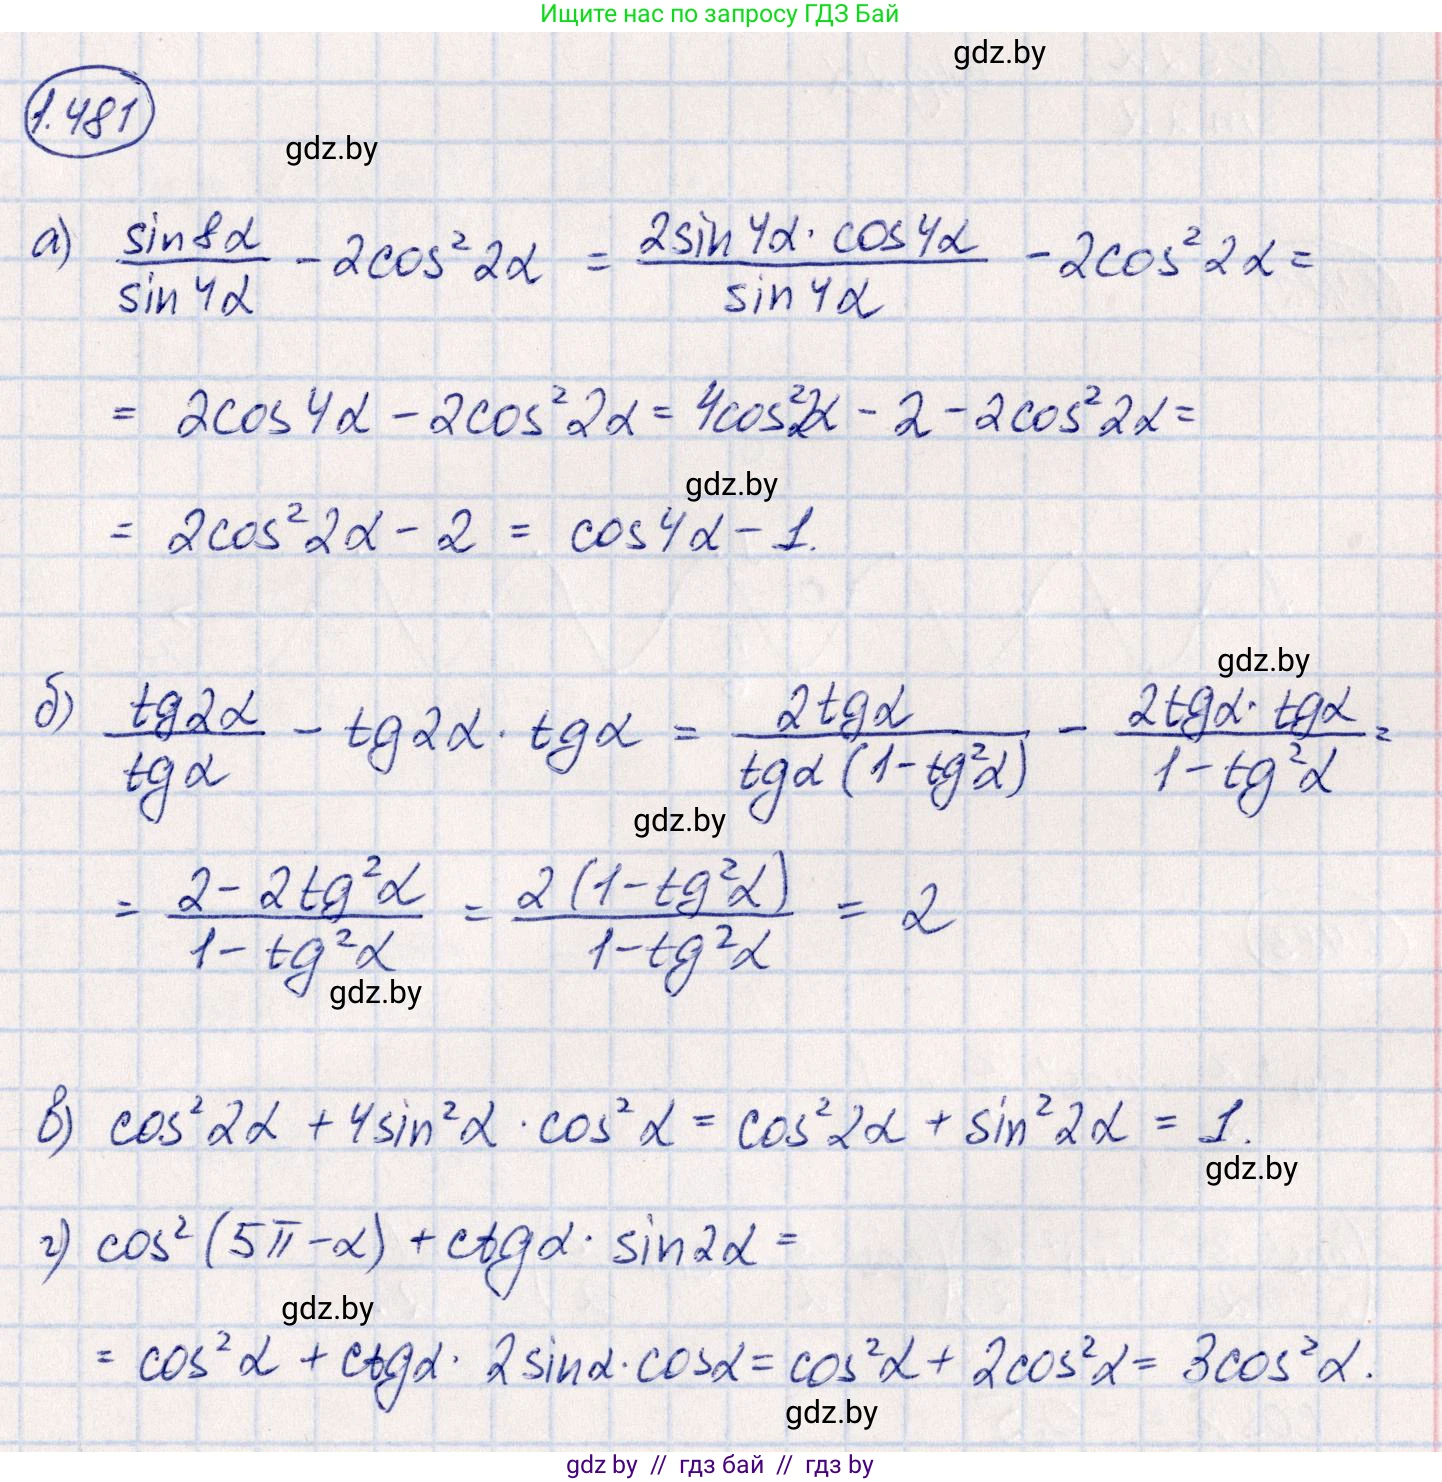 Ищите нас по запросу ГДЗ Бай
gdz.by
1.481
gdz.by
а) sin8α/sin4α - 2cos²2α = 2sin4α·cos4α/sin4α - 2cos²2α =
= 2cos4α - 2cos²2α = 4cos²2α - 2 - 2cos²2α =
gdz.by
= 2cos²2α - 2 = cos4α - 1.
gdz.by
б) tg2α/tgα - tg2α · tgα = 2tgα/tgα(1-tg²α) - 2tgα·tgα/1-tg²α =
gdz.by
= 2-2tg²α/1-tg²α = 2(1-tg²α)/1-tg²α = 2
gdz.by
в) cos²2α + 4sin²α · cos²α = cos²2α + sin²2α = 1.
gdz.by
г) cos²(5π-α) + ctgα · sin2α =
gdz.by
= cos²α + ctgα · 2sinα·cosα = cos²α + 2cos²α = 3cos²α.
gdz.by
gdz by // гдз бай // гдз by